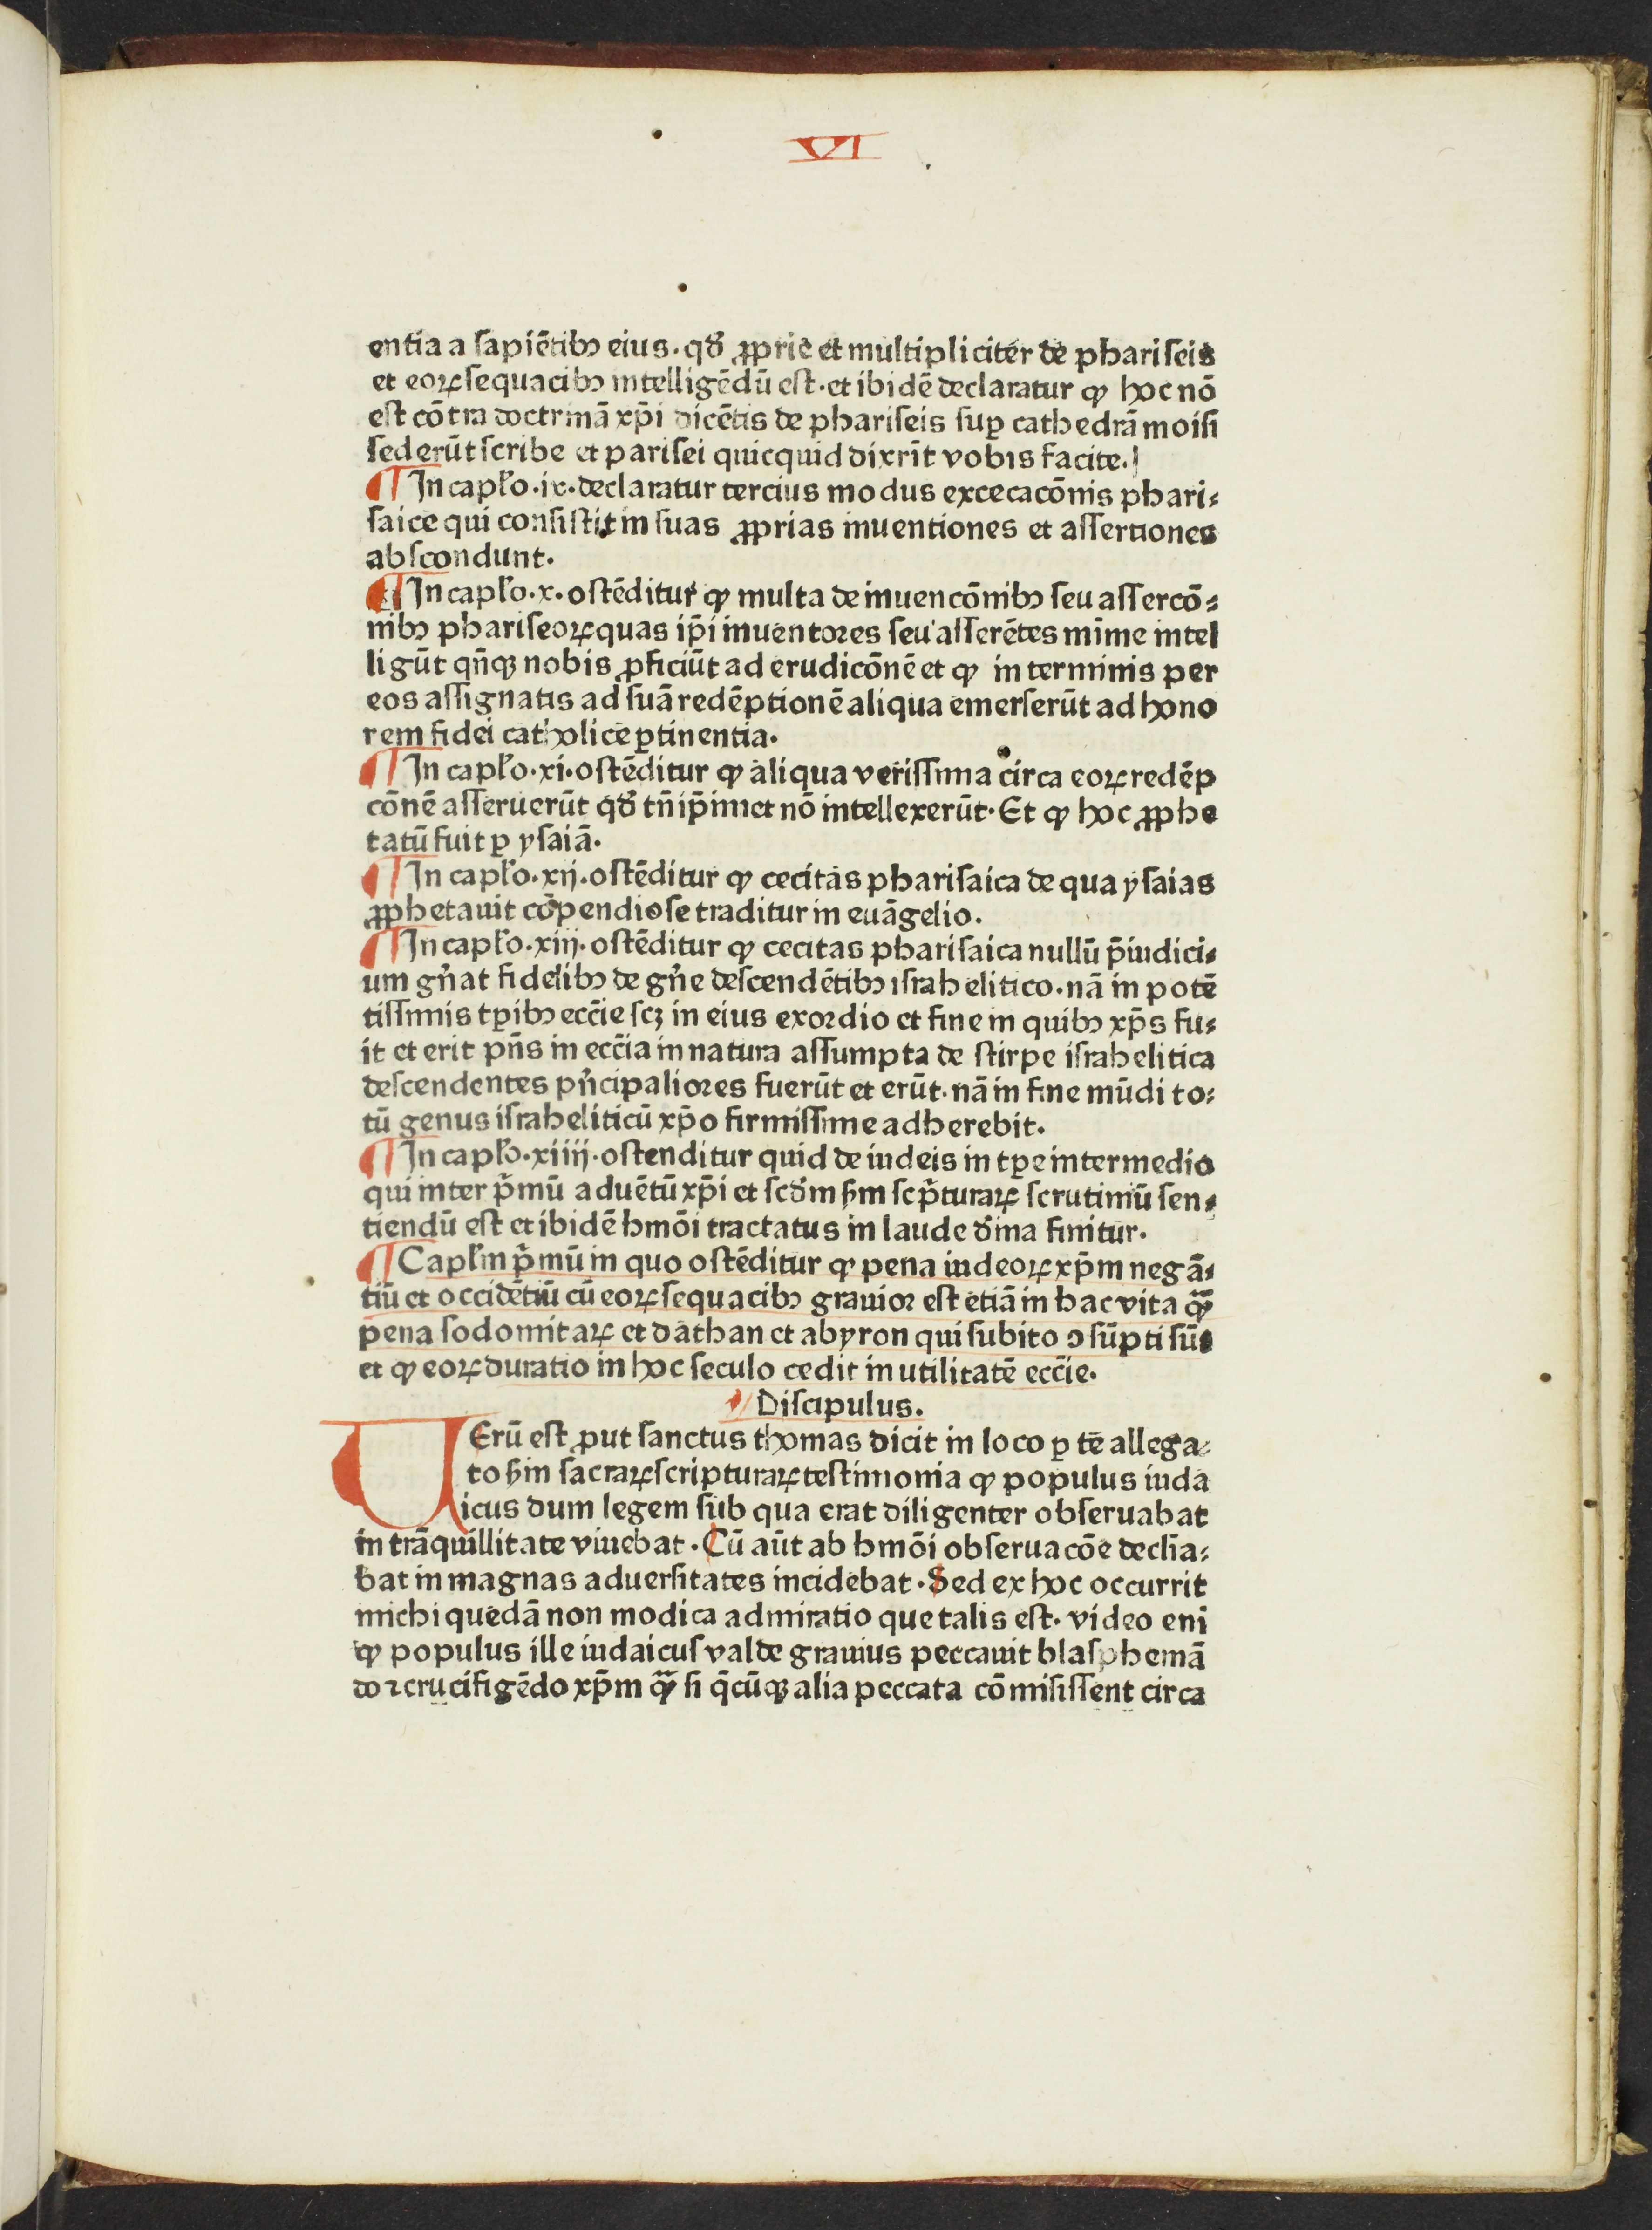 VI
entia a sapiētibꝰ eius. qđ ꝓprie et multipliciter de phariseis
et eoꝝ sequacibꝰ intelligēdū est. et ibidē declaratur ꝙ hoc nō
est cōtra doctrinā xp̄i dicētis de phariseis suꝑ cathedrā moisi
sederūt scribe et parisei quicquid dixrīt vobis facite.
¶ In capl'o .ix. declaratur tercius modus excecacōnis phari⸗
saice qui consistit in suas ꝓprias inuentiones et assertiones
abscondunt.
¶ In capl'o .x. ostēditur ꝙ multa de inuencōnibꝰ seu assercō⸗
nibꝰ phariseoꝝ quas ip̄i inuentores seu asserētes mīme intel
ligūt qn̄qꝫ nobis ꝓficiūt ad erudicōnē et ꝙ in terminis per
eos assignatis ad suā redēptionē aliqua emerserūt ad hono
rem fidei catholice ꝑtinentia.
¶ In capl'o .xi. ostēditur ꝙ aliqua verissima circa eoꝝ redēp
cōnē asseruerūt qđ tn̄ ip̄imet nō intellexerūt. Et ꝙ hoc ꝓphe
tatū fuit ꝑ ysaiā.
¶ In capl'o .xij. ostēditur ꝙ cecitas pharisaica de qua ysaias
ꝓphetauit cōpendiose traditur in euāgelio.
¶ In capl'o .xiij. ostēditur ꝙ cecitas pharisaica nullū p̄iudici⸗
um gn̄at fidelibꝰ de gn̄e descendētibꝰ israhelitico. nā in potē
tissimis tꝑibꝰ ecc̄ie scꝫ in eius exordio et fine in quibꝰ xp̄s fu⸗
it et erit pn̄s in ecc̄ia in natura assumpta de stirpe israhelitica
descendentes pn̄cipaliores fuerūt et erūt. nā in fine mūdi to⸗
tū genus israheliticū xp̄o firmissime adherebit.
¶ In capl'o .xiiij. ostenditur quid de iudeis in tꝑe intermedio
qui inter p̄mū aduētū xp̄i et scđm ẜm scp̄turaꝝ scrutiniū sen⸗
tiendū est et ibidē hmōi tractatus in laude đina finitur.
¶ Capl'm p̄mū in quo ostēditur ꝙ pena iudeoꝝ xp̄m negā⸗
tiū et occidētiū cū eoꝝ sequacibꝰ grauior est etiā in hac vita ꝙ̄
pena sodomitaꝝ et dathan et abyron qui subito ꝯsūpti sūt
et ꝙ eoꝝ duratio in hoc seculo cedit in utilitatē ecc̄ie.
Discipulus.
UErū est ꝓut sanctus thomas dicit in loco ꝑ te allega⸗
to ẜm sacraꝝ scripturaꝝ testimonia ꝙ populus iuda
icus dum legem sub qua erat diligenter obseruabat
in trāquillitate viuebat. Cū aūt ab hmōi obseruacōe declīa⸗
bat in magnas aduersitates incidebat. Sed ex hoc occurrit
michi quedā non modica admiratio que talis est. video eni
ꝙ populus ille iudaicus valde grauius peccauit blasphemā
do ꝛ crucifigēdo xp̄m ꝙ̄ si q̄cūqꝫ alia peccata cōmisissent circa